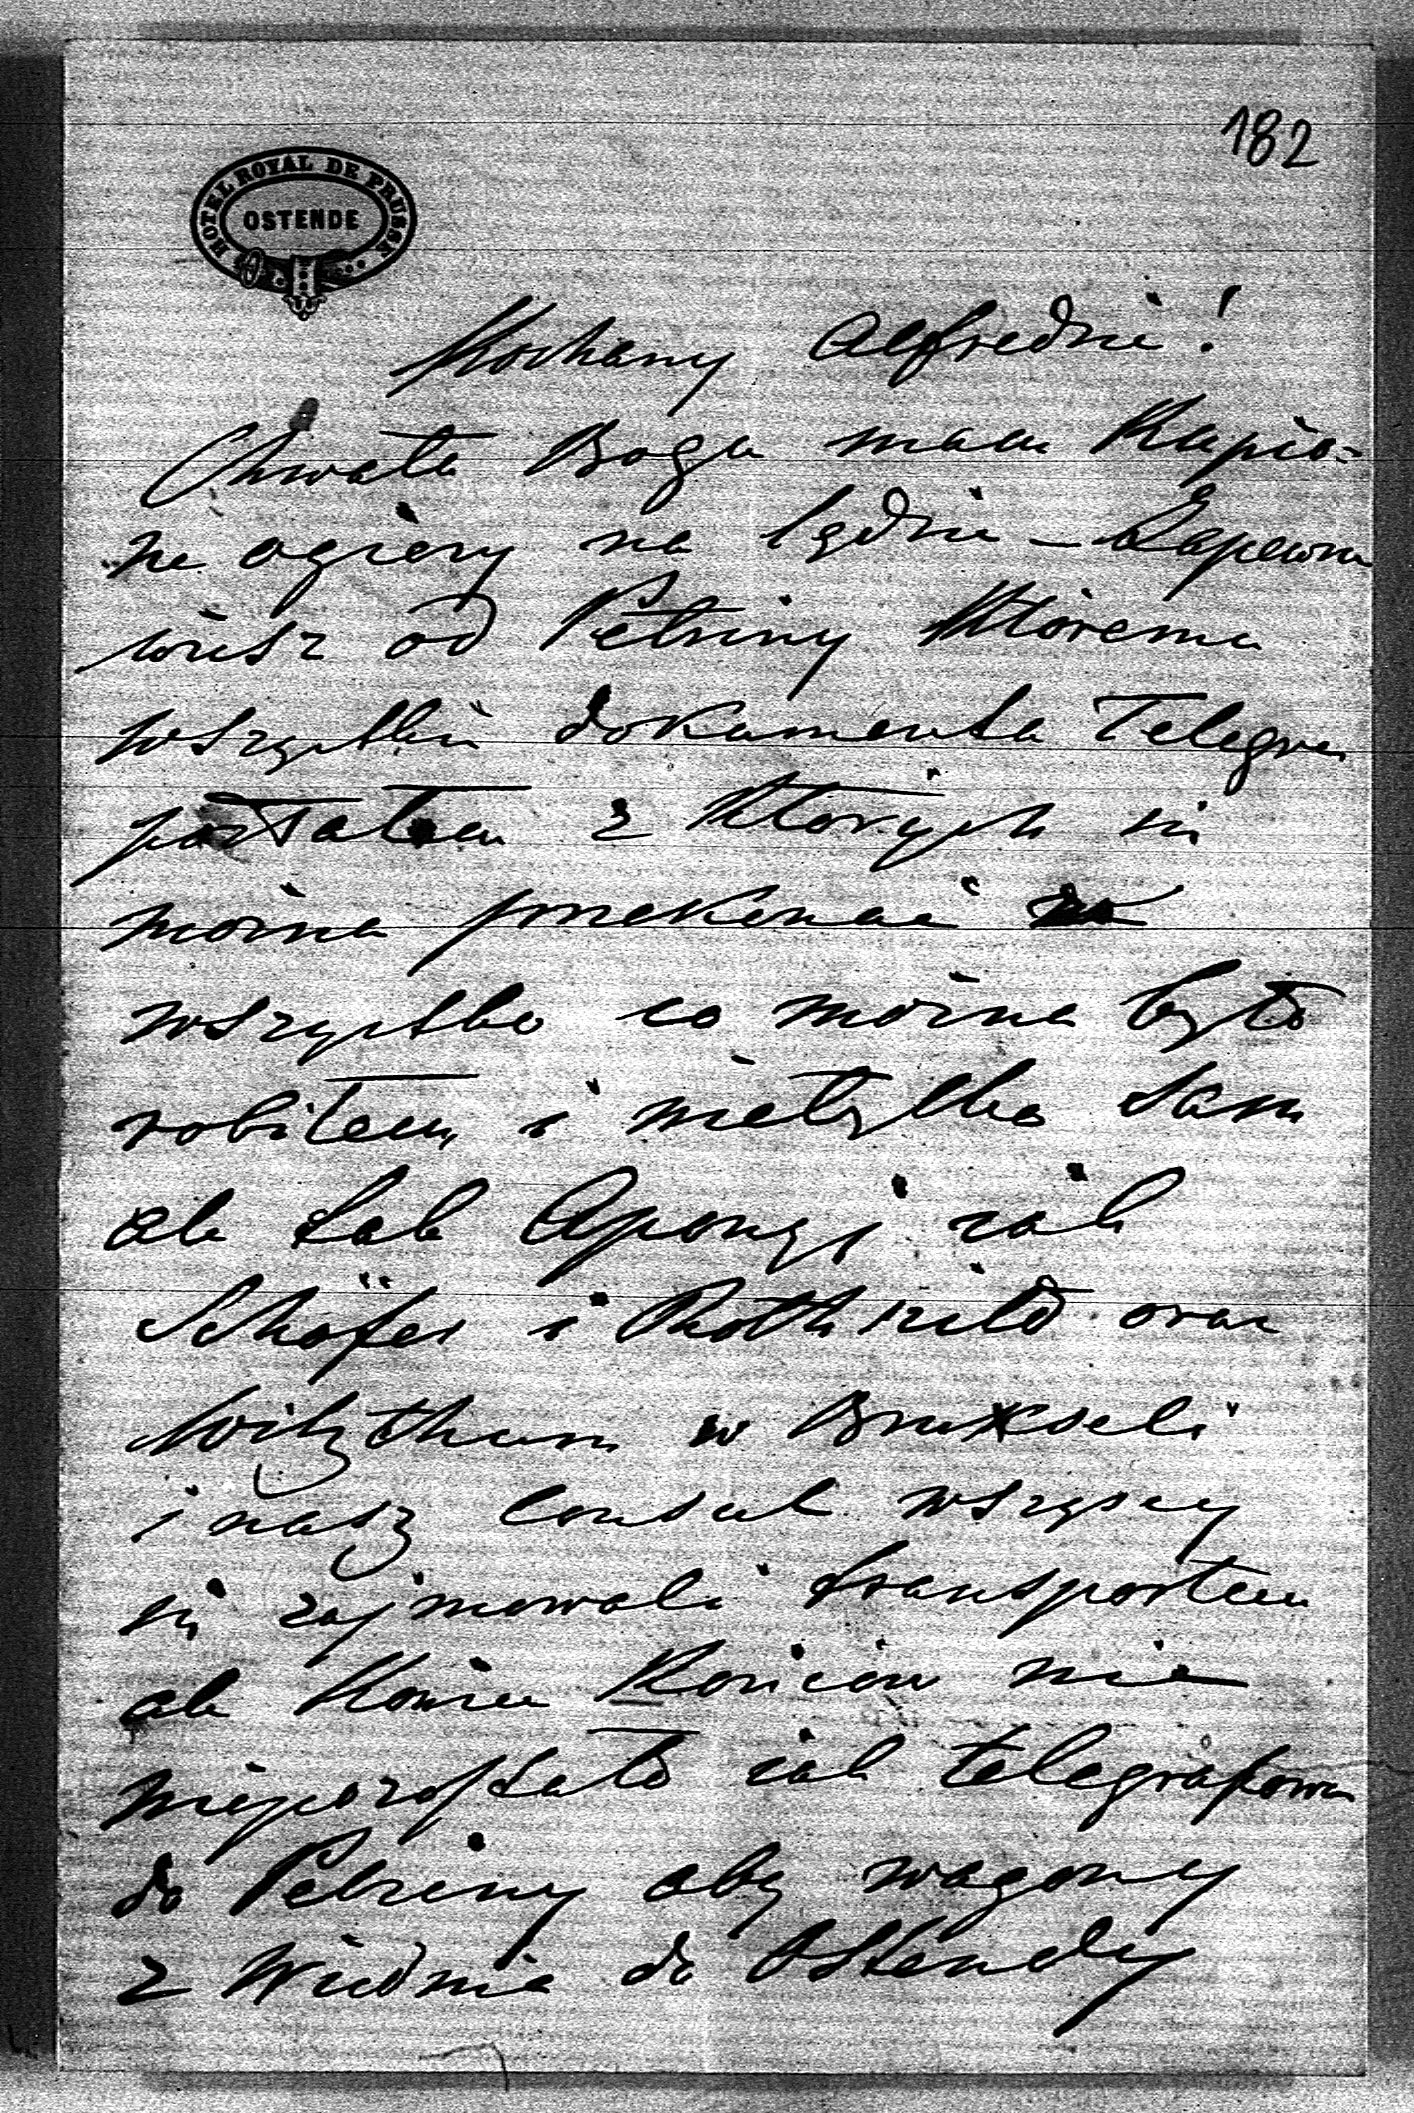 182
HOTEL ROYAL DE PRUSSE
OSTENDE
Kochany Alfredzie!
Chwała Bogu mam Kupio=
ne ogiery na lądzie – Zapewne
wiesz od Petriny Któremu
wszystkie dokumenta Telegra
posłałem z Których się
można przekonać
wszystko co można było
robiłem i nietylko sam
ale tak Apongi jak
Schäfer i Rothszild oraz
Witzthum w Bruxseli
i nasz Consul wszyscy
się zajmowali transportem
ale Koniec Końców nie
niepozostało jak telegrafowa
do Petriny aby wagony
z Wiednia do Ostendy